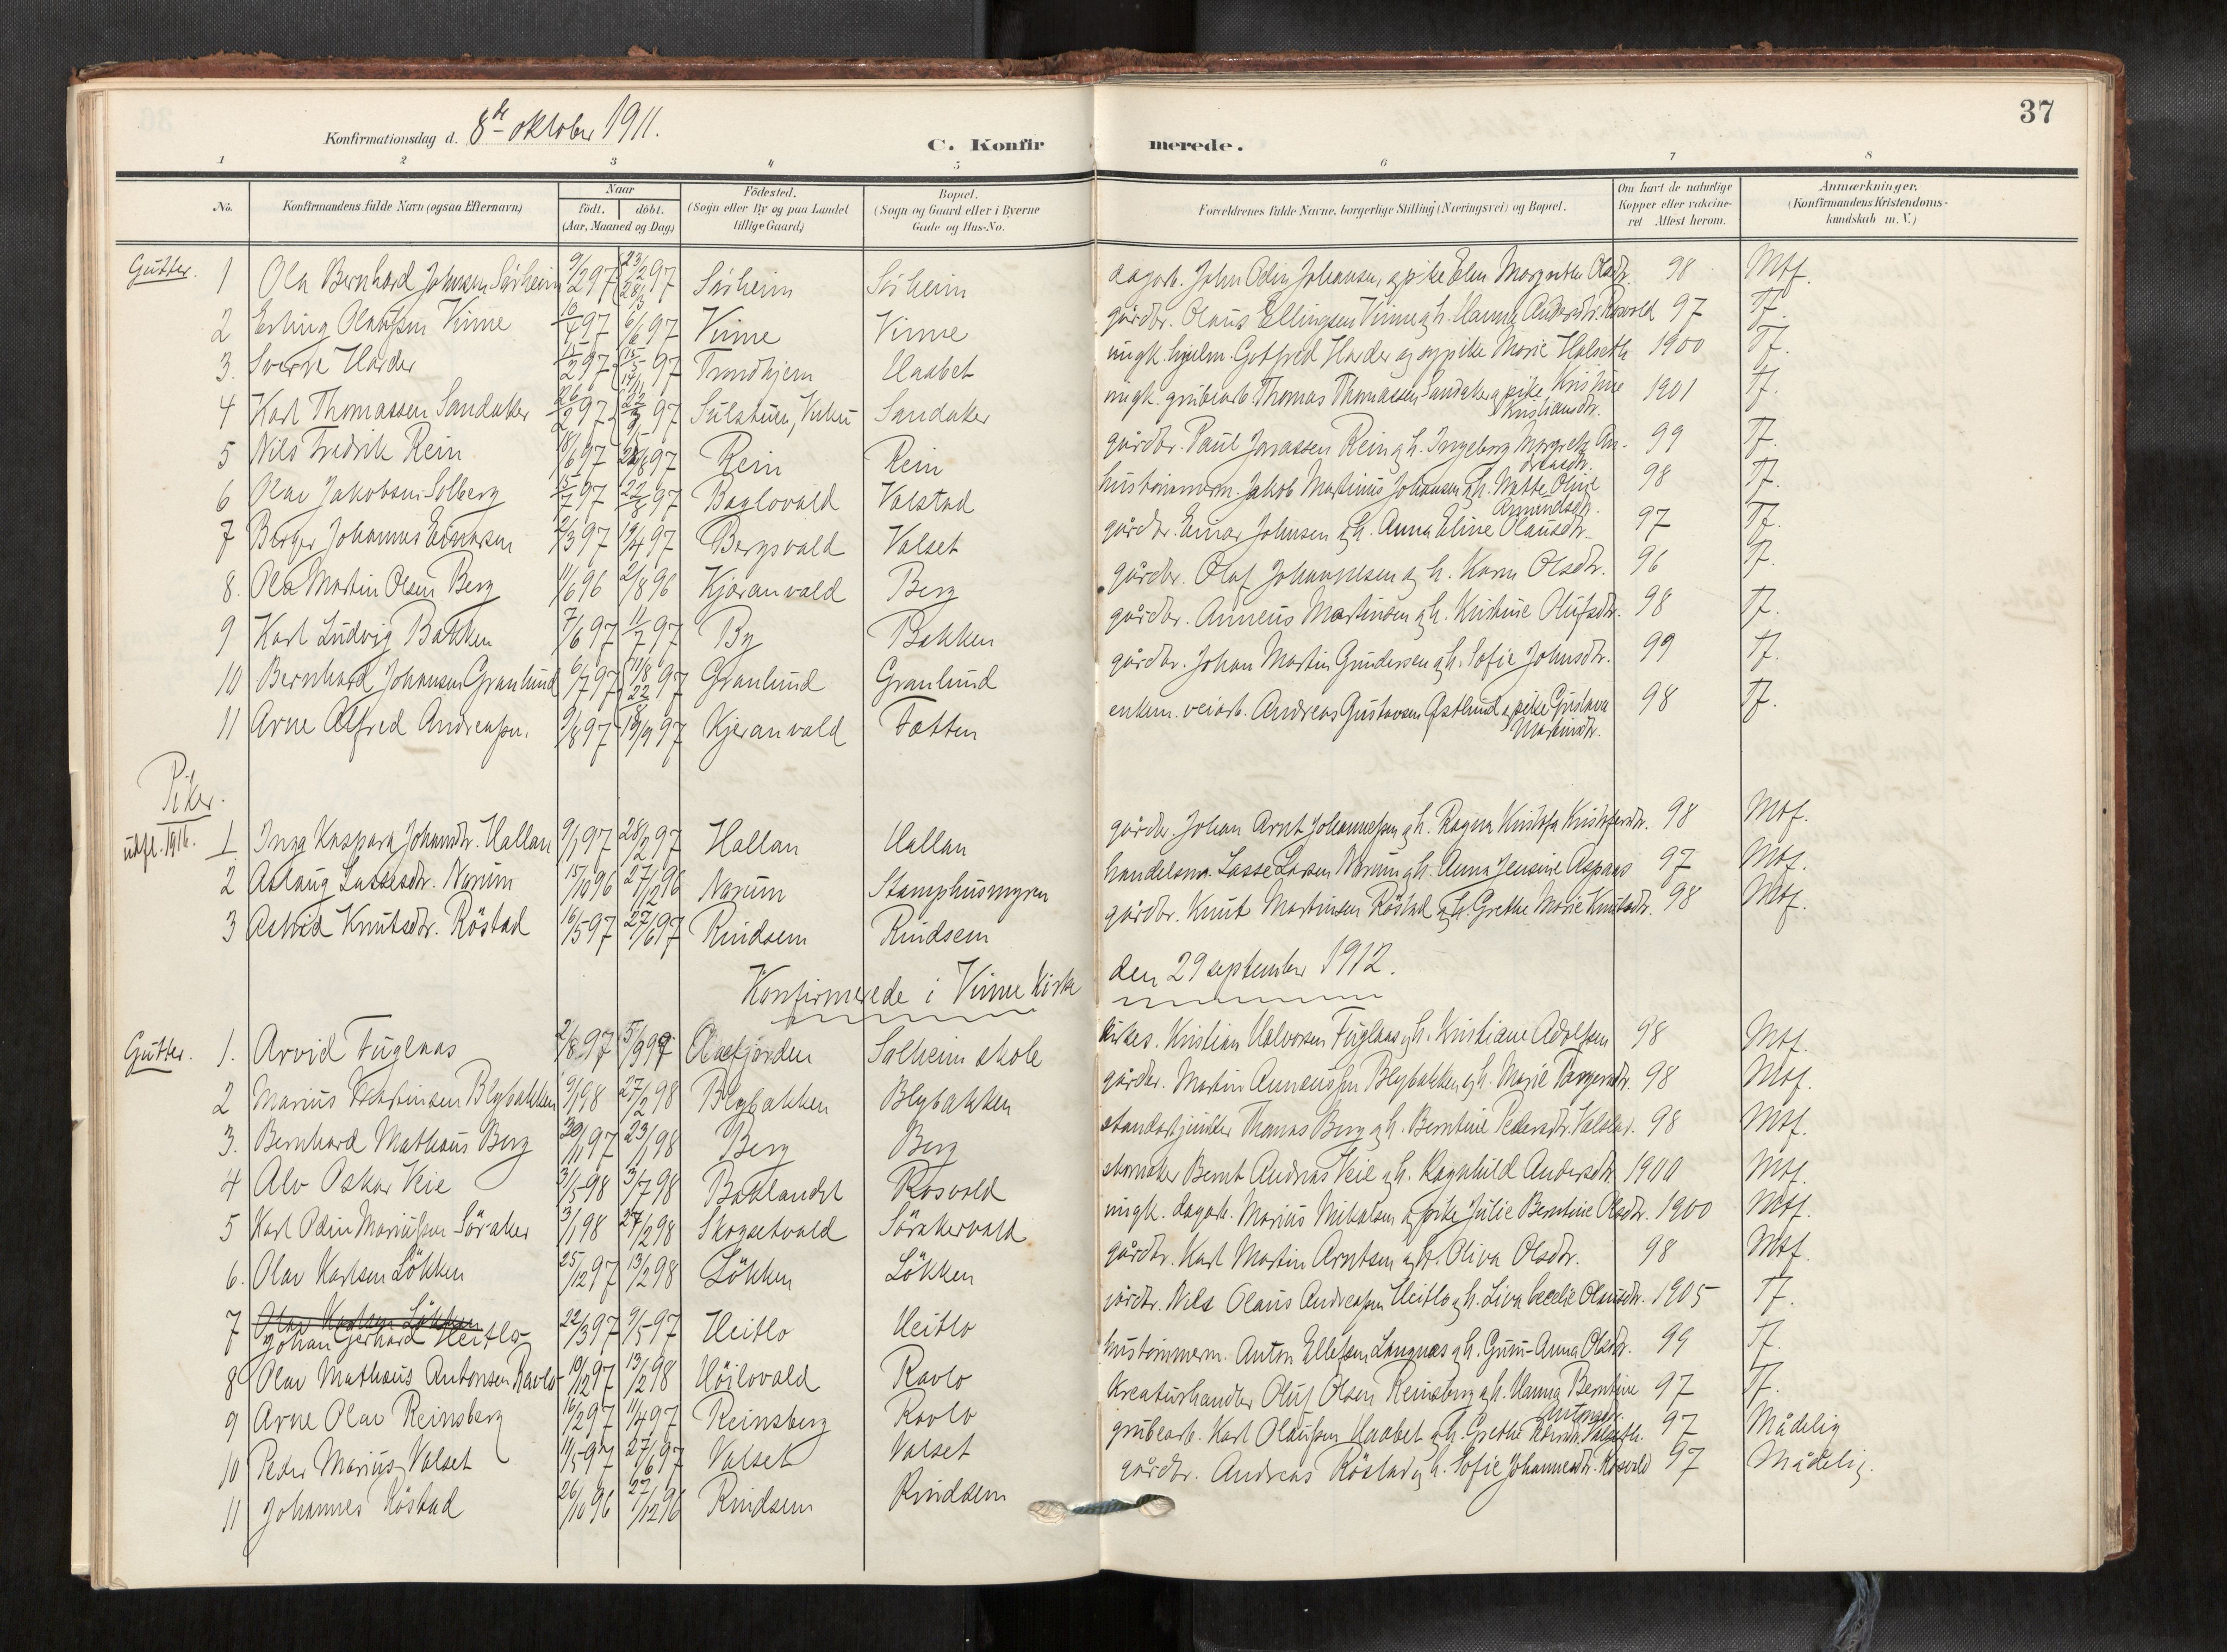 37
Konfirmationsdag d. 8de oktober 1911.
C. Konfirmerede.
1 2 3 4 5 6 7 8
No.
Konfirmandens fulde Navn (ogsaa Efternavn)
Naar
födt. döbt.
(Aar, Maaned og Dag)
Födested.
(Sogn eller By og paa Landet
tillige Gaard)
Bopæl.
(Sogn og Gaard eller i Byerne
Gade og Hus-No.
Forældrenes fulde Navne, borgerlige Stilling (Næringsvei) og Bopæl.
Om havt de naturlige
Kopper eller vakcine-
ret Attest herom.
Anmærkninger.
(Konfirmandens Kristendoms-
kundskab m. V.)
Gutter. 1 Ola Bernhard Johnsen Sörheim 9/2 97 Sörheim Sörheim dagarb. John Odin Johansen, og pike Elen Margrethe Olsdtr. 98 Mtf.
2 Erling Olaussen Vinne 13/4 97 6/6 97 Vinne Vinne gårdbr. Olaus Ellingsen Vinne og h. Hanna Andersdtr. Rosvold 97 Tf.
3. Sverre Harder 15/2 97 Trondhjem Haabet ungk. Gotfred Harder og pike Marie Halseth 1900 Tf.
4 Karl Thomassen Sandaker 26/2 97 Sulstuen, Vuku Sandaker ungk. grubearb. Thomas Thomassen Sandaker og pike Kristine 1901 Tf.
Kristiansdtr.
5 Nils Fredrik Rein 18/6 97 Rein Rein gårdbr. Paul Jonassen Rein og h. Ingeborg Margrete An- 99 Tf.
dreasdtr.
6 Olav Jakobsen Solberg 15/7 97 22/8 97 Baglovald Valstad hustömmerm. Jakob Martinus Johansen og h. Oline 98 Tf.
Amundsdtr.
7 Birger Johannes Einarsen 2/3 97 19/4 97 Bergsvald Valset gårdbr. Einar Johnsen og h. Anna Eline Olausdtr. 97 Tf.
8. Ola Martin Olsen Berg 11/6 96 2/8 96 Kjæranvald Berg gårdbr. Olaf Johannesen og h. Karen Olsdtr. 96 Tf.
9 Karl Ludvig Bakken 7/6 97 11/7 97 By Bakken gårdbr. Anneus Martinsen og h. Kristine Olufsdtr. 98 Tf.
10 Bernhard Johansen Granlund 6/7 97 Granlund Granlund gårdbr. Johan Martin Gundersen og h. Sofie Johnsdtr. 99 Tf.
11 Arne Alfred Andreassen. 9/8 97 19/9 97 Kjæranvald Fatten enkem. veiarb. Andreas Gustavsen Östlund og pike Gustava 98 Tf.
Martinsdtr.
Piker.
utfl. 1916. 1 Inga Kaspara Johansdtr. Hallan 9/1 97 28/2 97 Hallan Hallan gårdbr. Johan Arnt Johannessen og h. Ragna Kristofa Kristofersdtr. 98 Mtf.
2 Aslaug Lassesdtr. Norum 15/10 96 27/12 96 Norum Stamphusmyren handelsm. Lasse Larsen Norum og h. Anna Jensine Aspaas 97 Mtf.
3 Astrid Knutsdtr. Röstad 16/5 97 27/6 97 Rindsem Rindsem gårdbr. Knut Martinsen Röstad og h. Grethe Marie Knutsdtr. 98 Mtf.
Konfirmerede i Vinne Kirke den 29 september 1912.
Gutter. 1. Arvid Fuglaas 2/8 97 5/9 97 Olafjorden Solheim skole kirkes. Kristian Halvorsen Fuglaas og h. Kristiane Adolfsen 98 Mtf.
2 Marius Martinsen Blybakken 9/1 98 27/2 98 Blybakken Blybakken gårdbr. Martin Anneussen Blybakken og h. Marie Torgersdtr. 98 Mtf.
3. Bernhard Mathæus Berg 30/11 97 23/1 98 Berg Berg standartjunker Thomas Berg og h. Berntine Pedersdtr. Valstad. 98 Mtf.
4 Alv Oskar Veie 31/5 98 3/7 98 Baklandet Rosvold skomaker Bernt Andreas Veie og h. Ragnhild Andersdtr. 1900 Mtf.
5 Karl Odin Mariussen Söraker 3/1 98 27/2 98 Skogsetvald Sörakervald ungk. dagarb. Marius Mikalsen og pike Julie Berntine Olsdtr. 1900 Mtf.
6. Olav Karlsen Lökken 25/12 97 13/2 98 Lökken Lökken gårdbr. Karl Martin Arntsen og h. Oliva Olsdtr. 98 Mtf.
Olav Karlsen Lökken
7 Johan Gerhard Heitlo 22/3 97 9/5 97 Heitlo Heitlo gårdbr. Nils Olaus Andreassen Heitlo og h. Liva Cecelie Olausdtr. 1905 Tf.
8 Olav Mathæus Antonsen Ravlo 10/12 97 13/2 98 Höilovald Ravlo hustömmerm. Anton Ellefsen Langnes og h. Guru-Anna Olsdtr. 99 Tf.
9 Arne Olav Reinsberg 16/2 97 11/4 97 Reinsberg Ravlo Kreaturhandler Oluf Olsen Reinsberg og h. Hanna Berntine 97 Tf.
Antonsdtr.
10 Peder Marius Valset 14/5 97 27/6 97 Valset Valset grubearb. Karl Olaussen Haabet og h. Grethe 97 Mådelig
11 Johannes Röstad 26/10 96 27/12 96 Rindsem Rindsem gårdbr. Andreas Röstad og h. Sofie Johannesdtr. Rosvold 97 Mådelig.